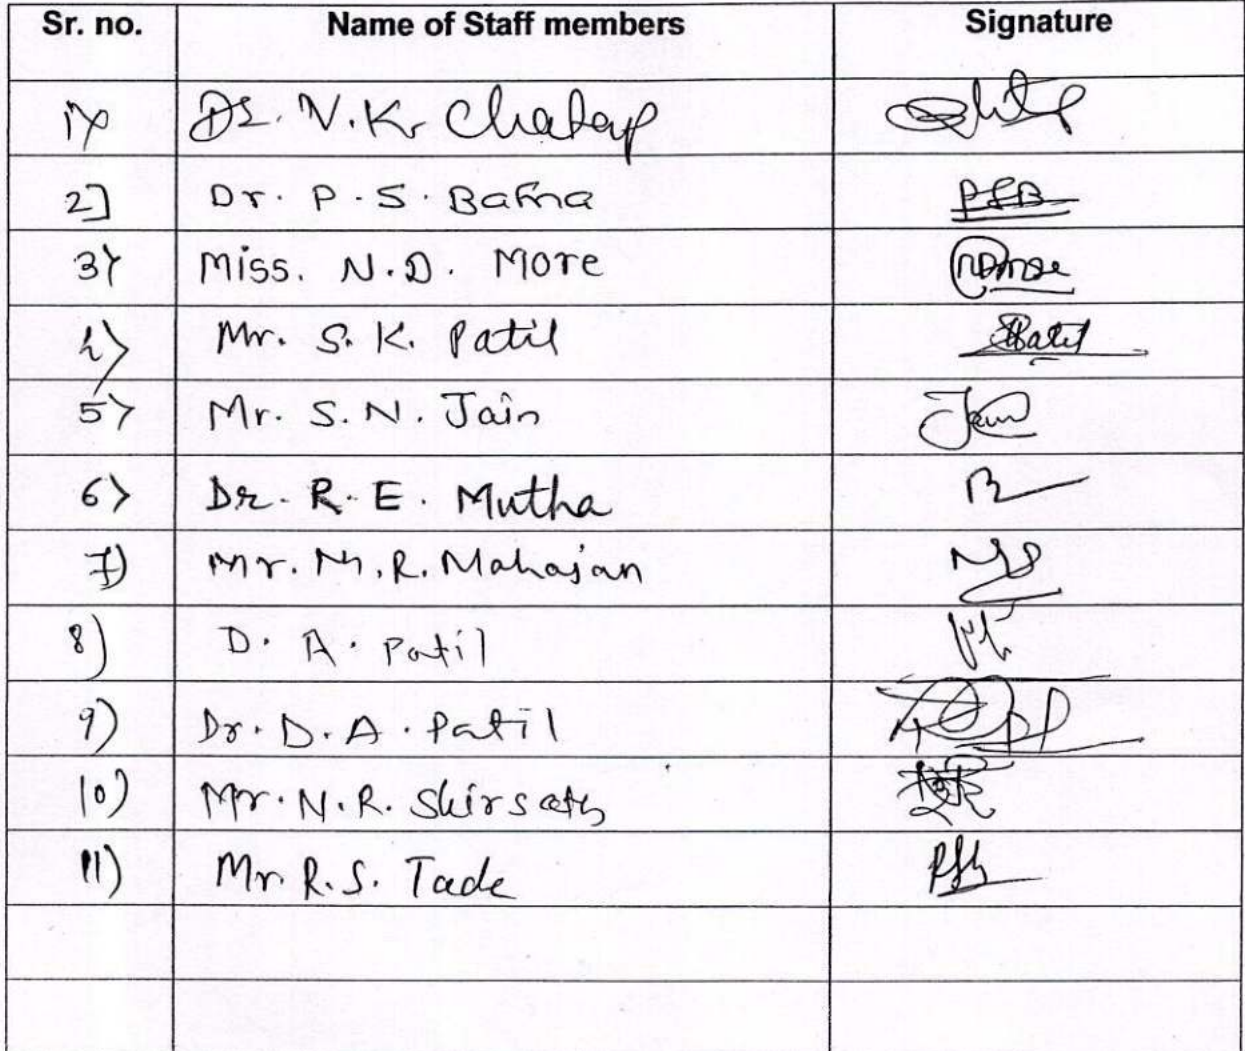 Sr. no. Name of Staff members Signature
1) Dr. V.K. Chatap
2] Dr. P.S. Bafna
3) Miss. N.D. More
4) Mr. S.K. Patil
5) Mr. S.N. Jain Jain
6) Dr. R.E. Mutha
7) Mr. M.R. Mahajan
8) D.A. Patil
9) Dr. D.A. Patil
10) Mr. N.R. Shirsath
11) Mr. R.S. Tade